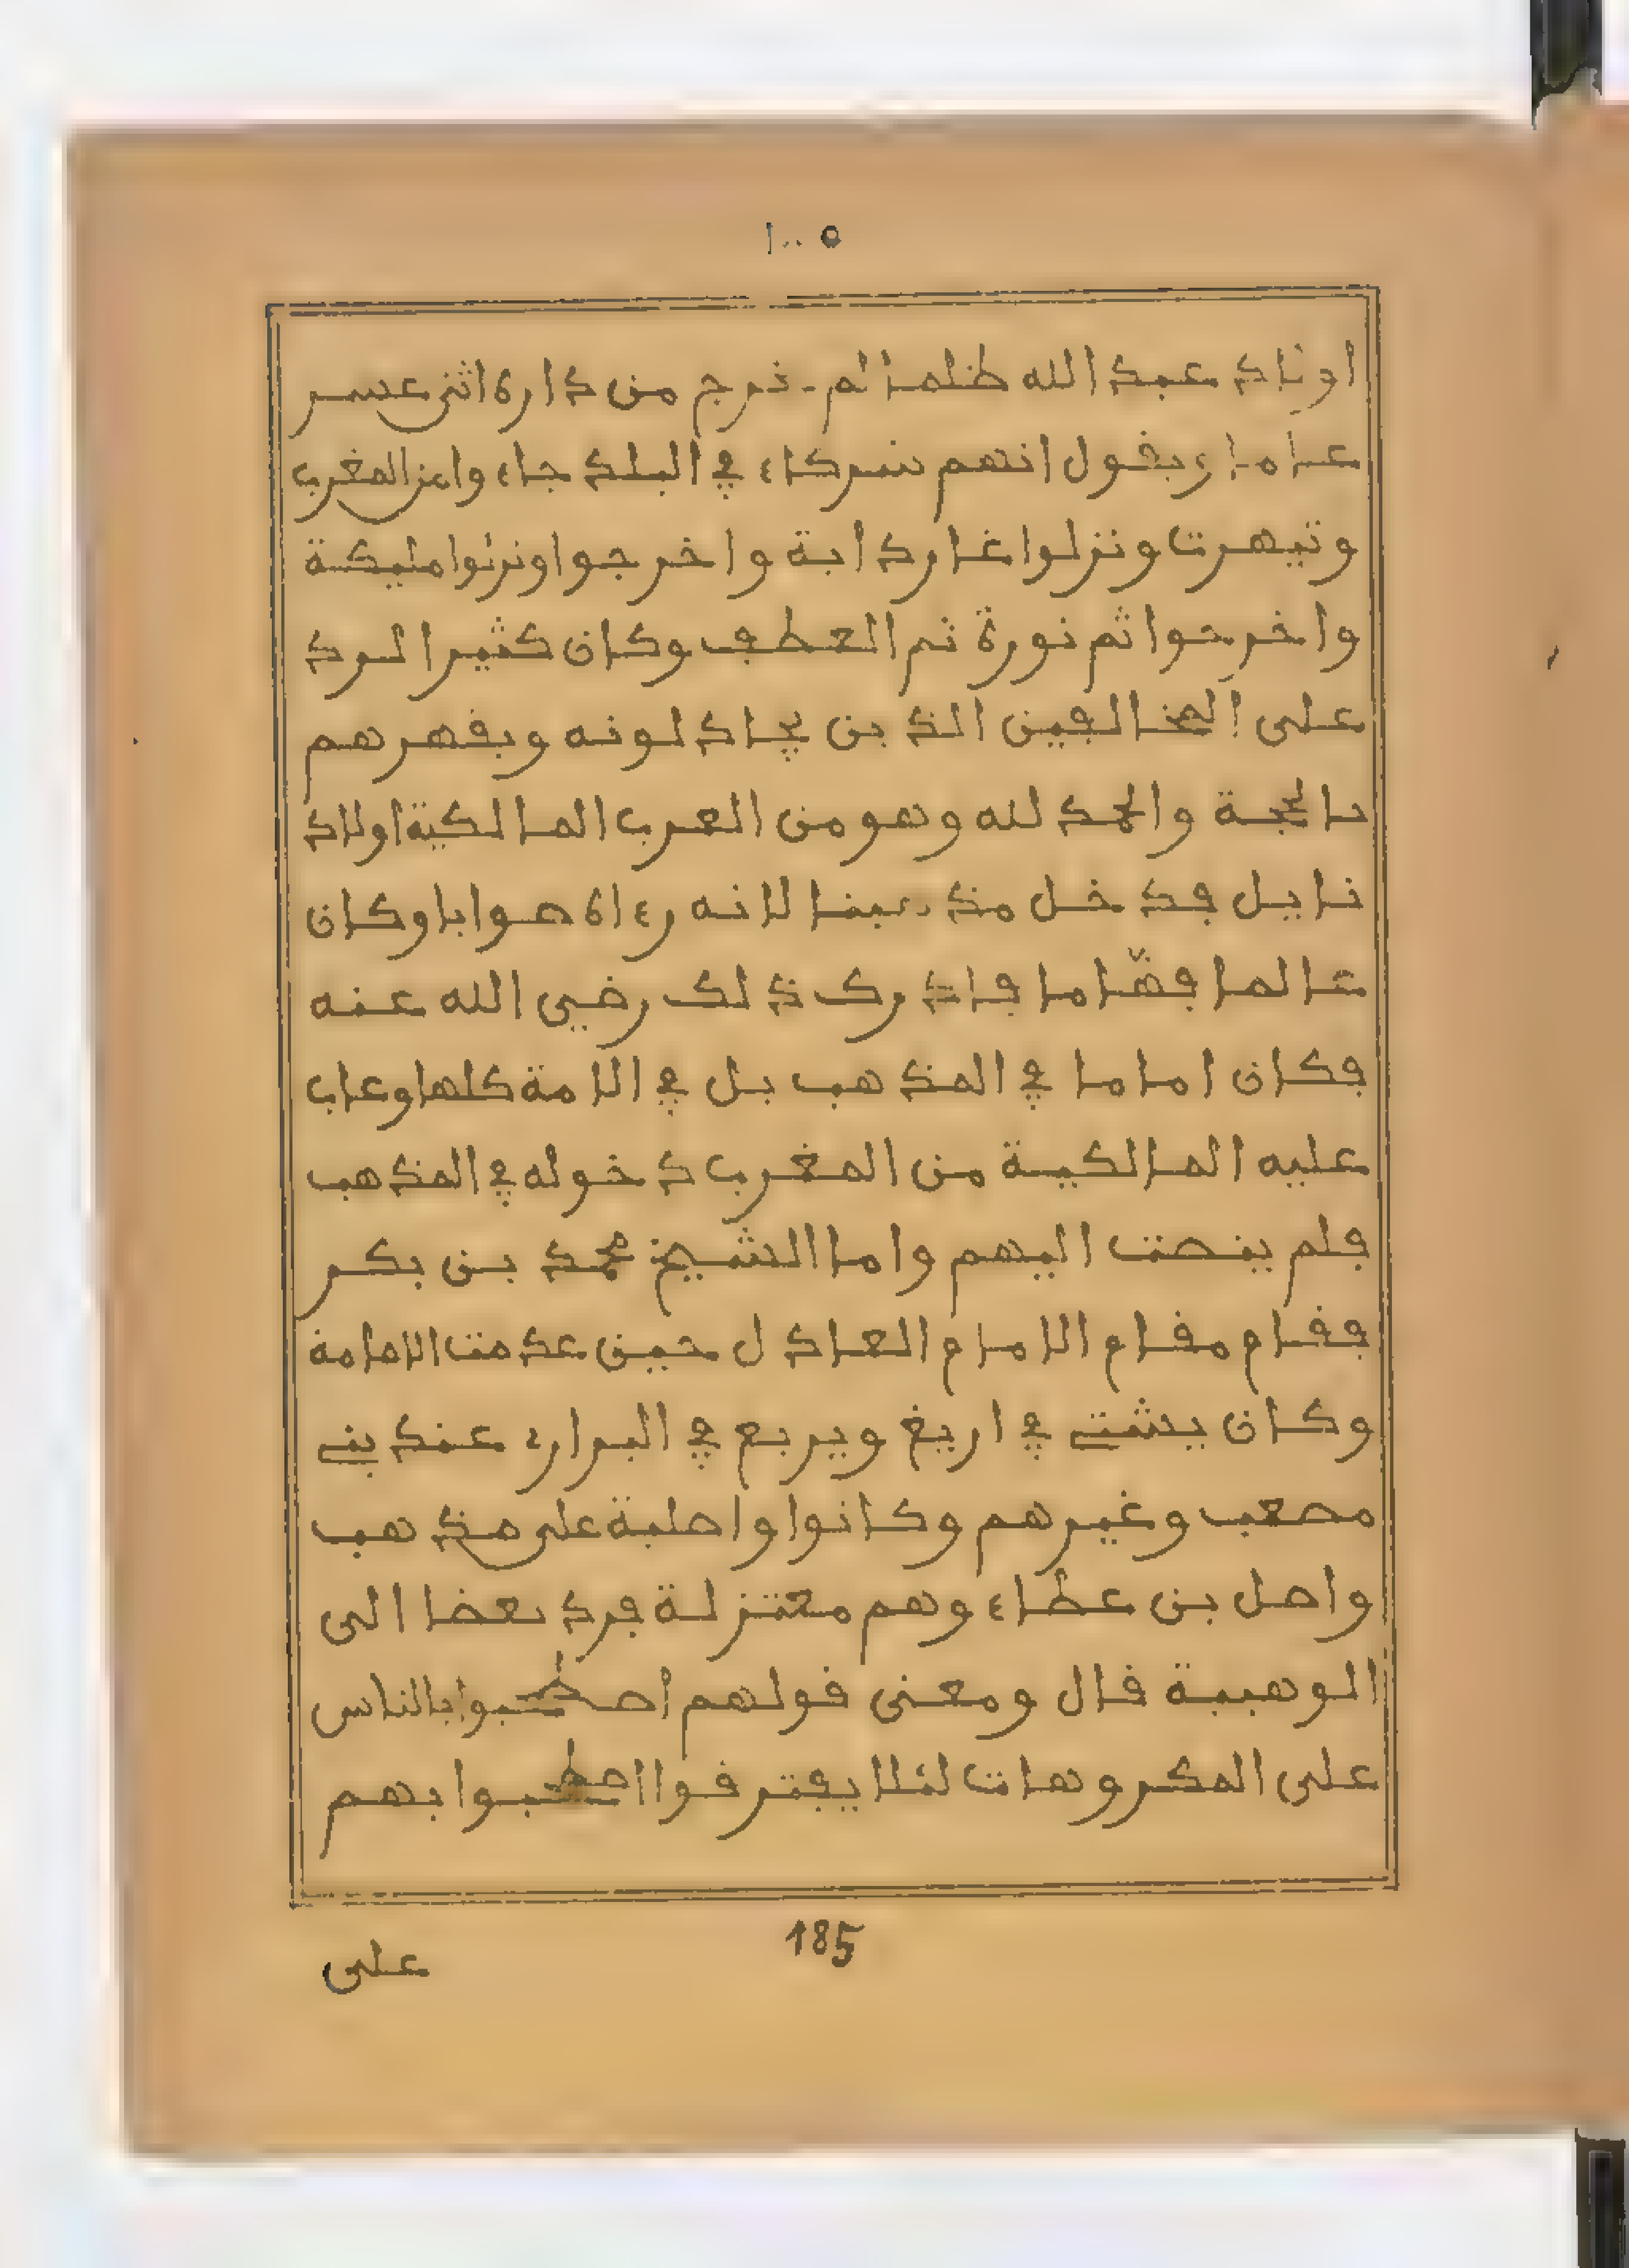 اولاد عبد الله ظلما لم يخرج من داره اثنى عشر
عاما ويقول انهم شركاء في البلد جاءوا من المغرب
وتيهرت ونزلوا غارداية واخرجوا ونزلوا مليكة
واخرجوا ثم نورة ثم العطف وكان كثير الرد
على المخالفين الذين يجادلونه ويقهرهم
بالحجة والحمد لله وهو من العرب المالكية اولاد
نايل فدخل مذهبنا لانه رءاه صوابا وكان
عالما فهاما فادرك ذلك رضي الله عنه
فكان اماما في المذهب بل في الامة كلها وعاب
عليه المالكية من المغرب دخوله في المذهب
فلم ينصت اليهم واما الشيخ محمد بن بكر
فقام مقام الامام العادل حين عدمت الامامة
وكان يشتي في اريغ ويربع في البراري عند بني
مصعب وغيرهم وكانوا واصلية على مذهب
واصل بن عطاء وهم معتزلة فرد بعضا الى
الوهبية قال ومعنى قولهم اصطحبوا بالناس
على المكروهات لئلا يفترقوا اصطحبوا بهم
185
على